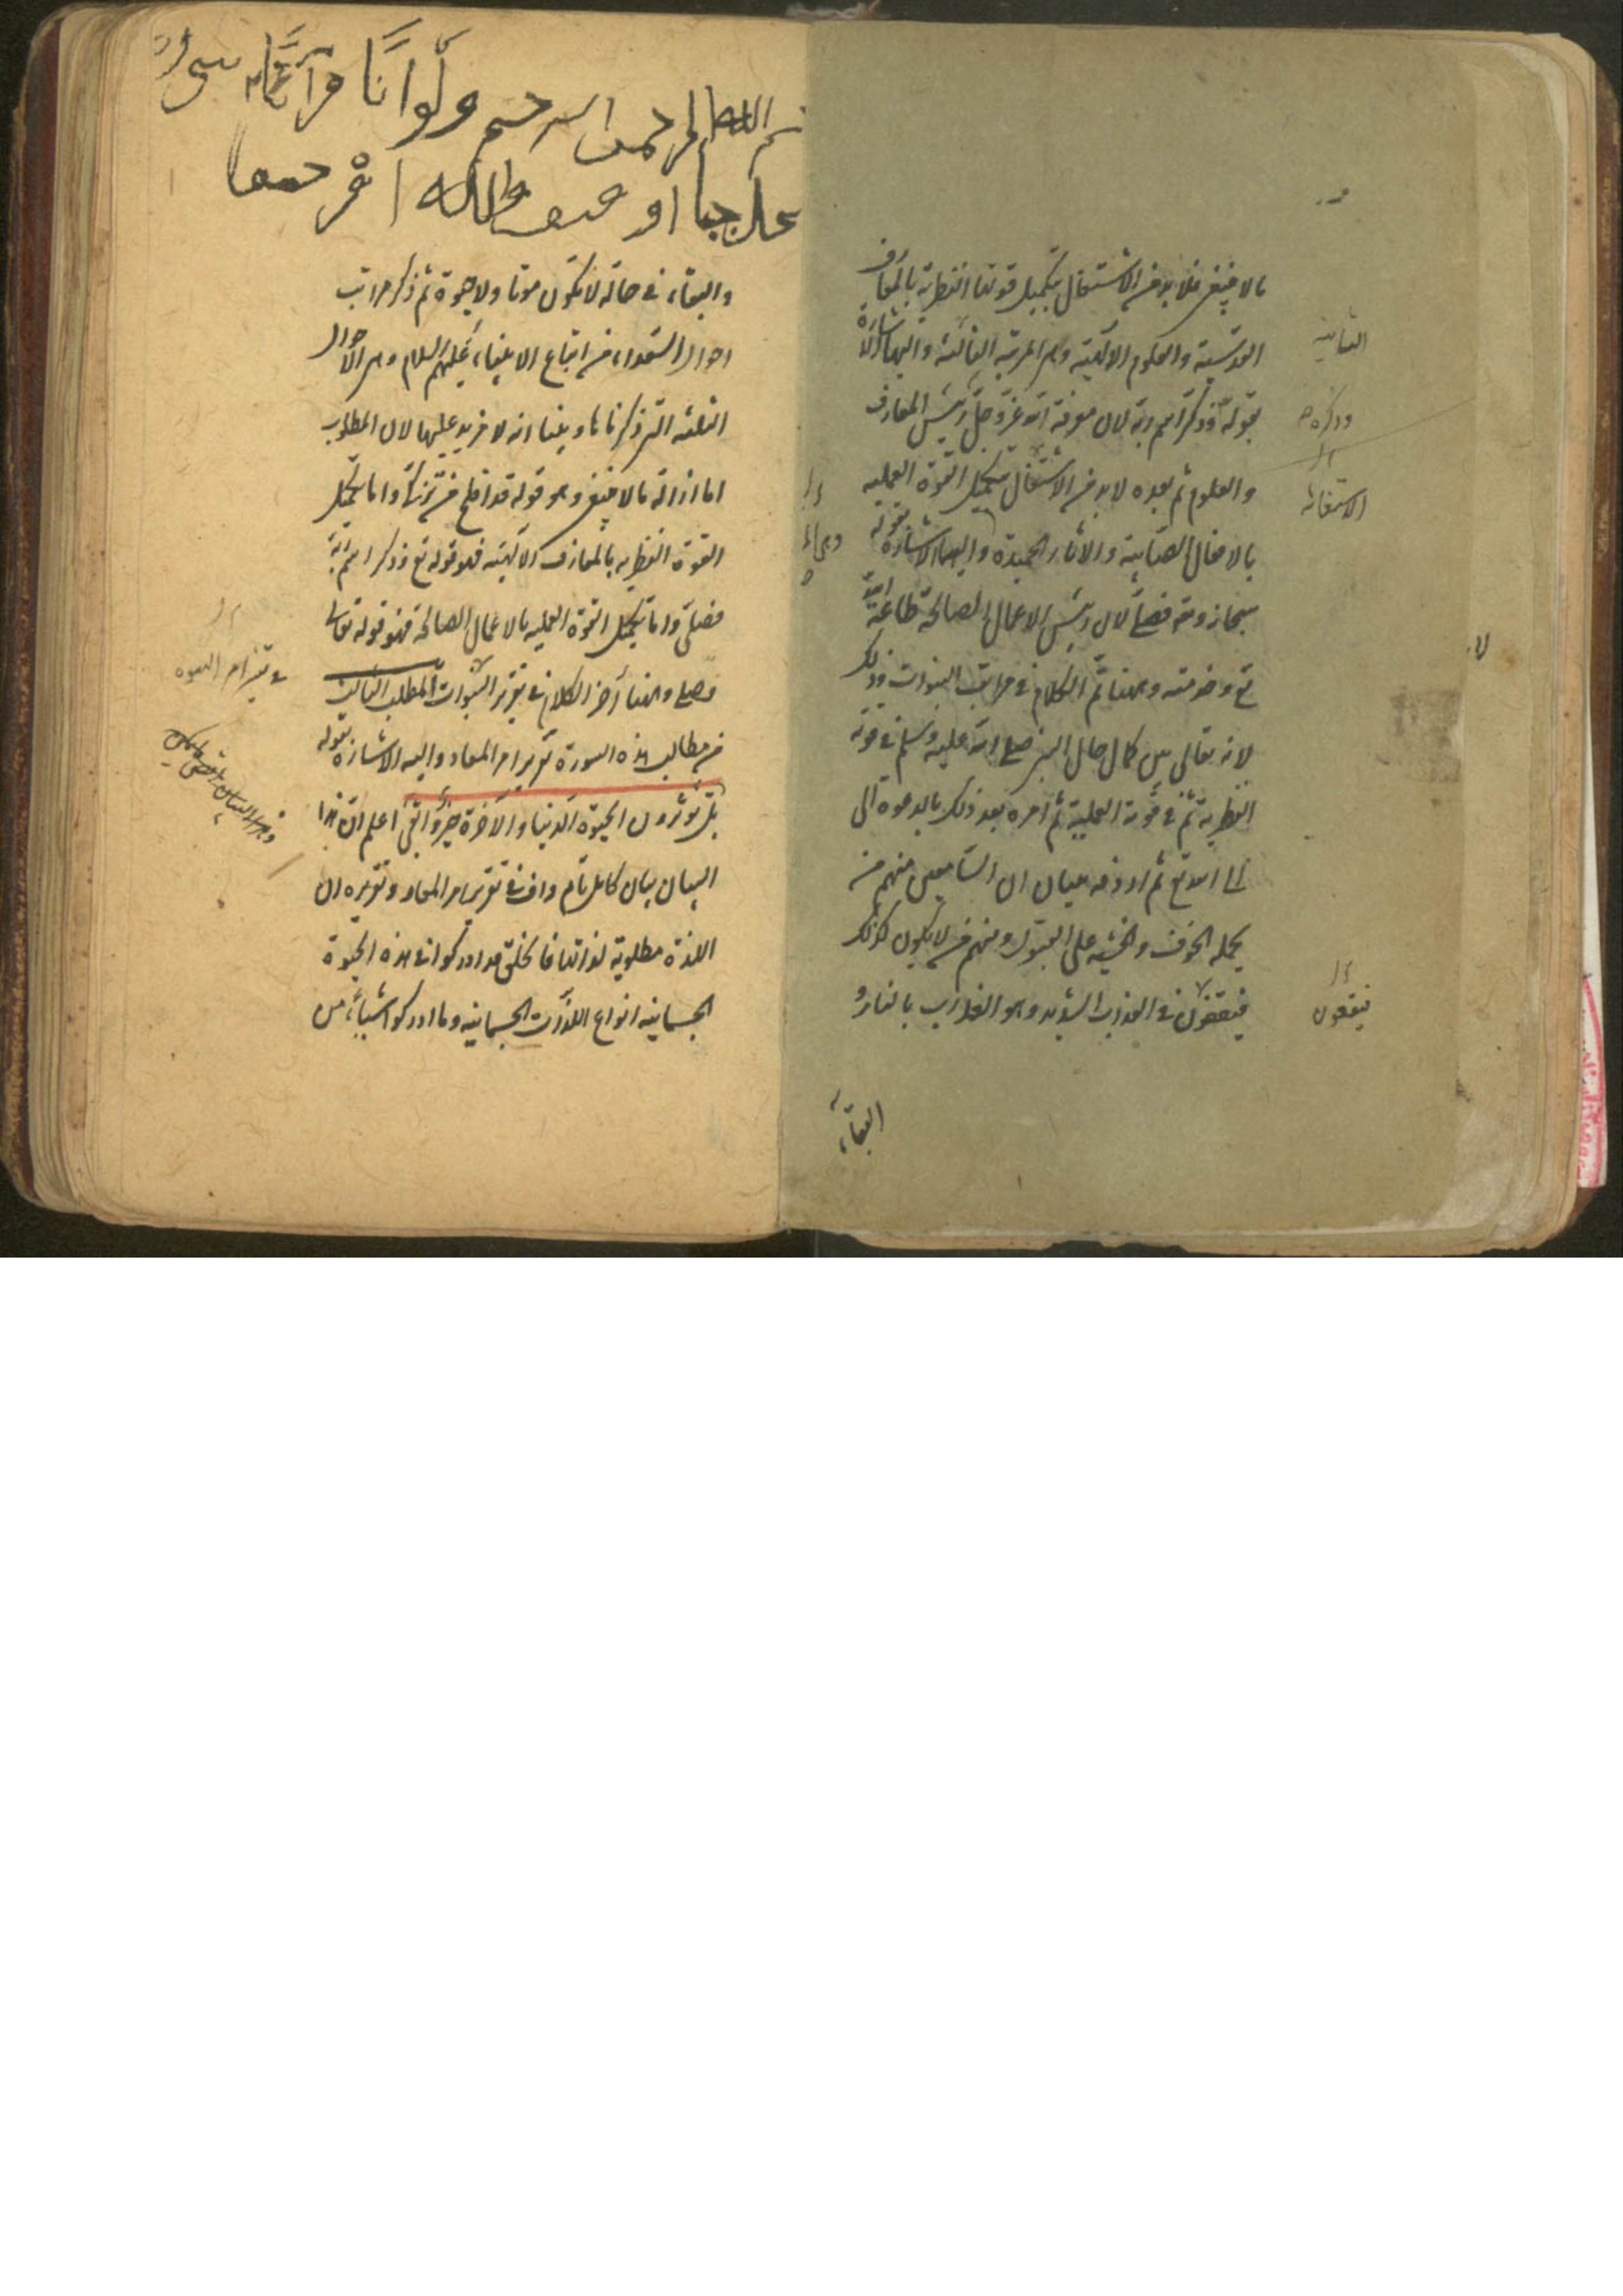 ما لا ينبغى فلا بد من الاشتغال بتكميل قوتها النظرية بالمعارف
القدسية والعلوم الالهية وهى المرتبة الثالثة واليها الاشارة
بقوله وذكر اسم ربه لان معرفة الله عز وجل رئيس المعارف
والعلوم ثم بعده لا بد من الاشتغال بتكميل القوة العملية
بالافعال الصائبة والاثار الحميدة واليها الاشارة بقوله
سبحانه وتع فصلى لان رئيس الاعمال الصالحة طاعة الله
تع وخدمته وههنا تم الكلام فى مراتب النبوات وذلك
لانه تعالى بين كمال حال النبى صلى الله عليه وسلم فى قوته
النظرية ثم فى قوته العملية ثم امره بعد ذلك بالدعوة الى
الى الله تع ثم اردفه ببيان ان السامعين منهم من
يحمله الخوف والخشية على القبول ومنهم من لا يكون كذلك
فيقفون فى العذاب الشديد وهو العذاب بالنار و
البقاء
الثانية
وذكره
الاستقامة
فيقعون
بسم الله الرحمن الرحيم ولو ان قرآنا سيرت
والبقاء فى حالة لا تكون موتا ولا حيوة ثم ذكر مراتب
احوال السعداء من اتباع الانبياء عليهم السلام وهى الاحوال
الثلثة التى ذكرناها وبينا انه لا مزيد عليها لان المطلوب
اما ازالة ما لا ينبغى وهو قوله قد افلح من تزكى واما تكميل
القوة النظرية بالمعارف الالهية فهو قوله تع وذكر اسم ربه
فصلى واما تكميل القوة العملية بالاعمال الصالحة فهو قوله تعالى
فصلى وههنا آخر الكلام فى تقرير النبوات المطلب الثالث
من مطالب هذه السورة تقرير امر المعاد واليه الاشارة بقوله
بل تؤثرون الحيوة الدنيا والآخرة خير وابقى اعلم ان هذا
البيان بيان كامل تام واف فى تقرير امر المعاد وتقريره ان
اللذة مطلوبة لذاتها فالخلق قد ادركوا فى هذه الحيوة
الجسمانية انواع اللذات الجسمانية وما ادركوا شيئا من